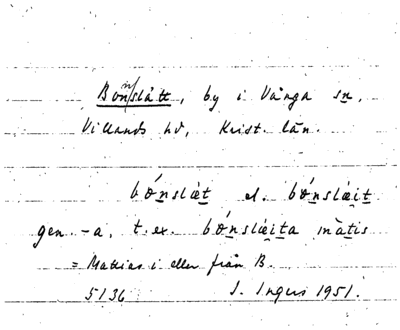 Bonnslätt, by i Vånga sn,
Villands hd, Krist. län.
bónslæt el. bónslæit
gen. -a, t.ex. bónslæita màtis
= Mattias i eller från B.
5136 S. Ingers 1951.